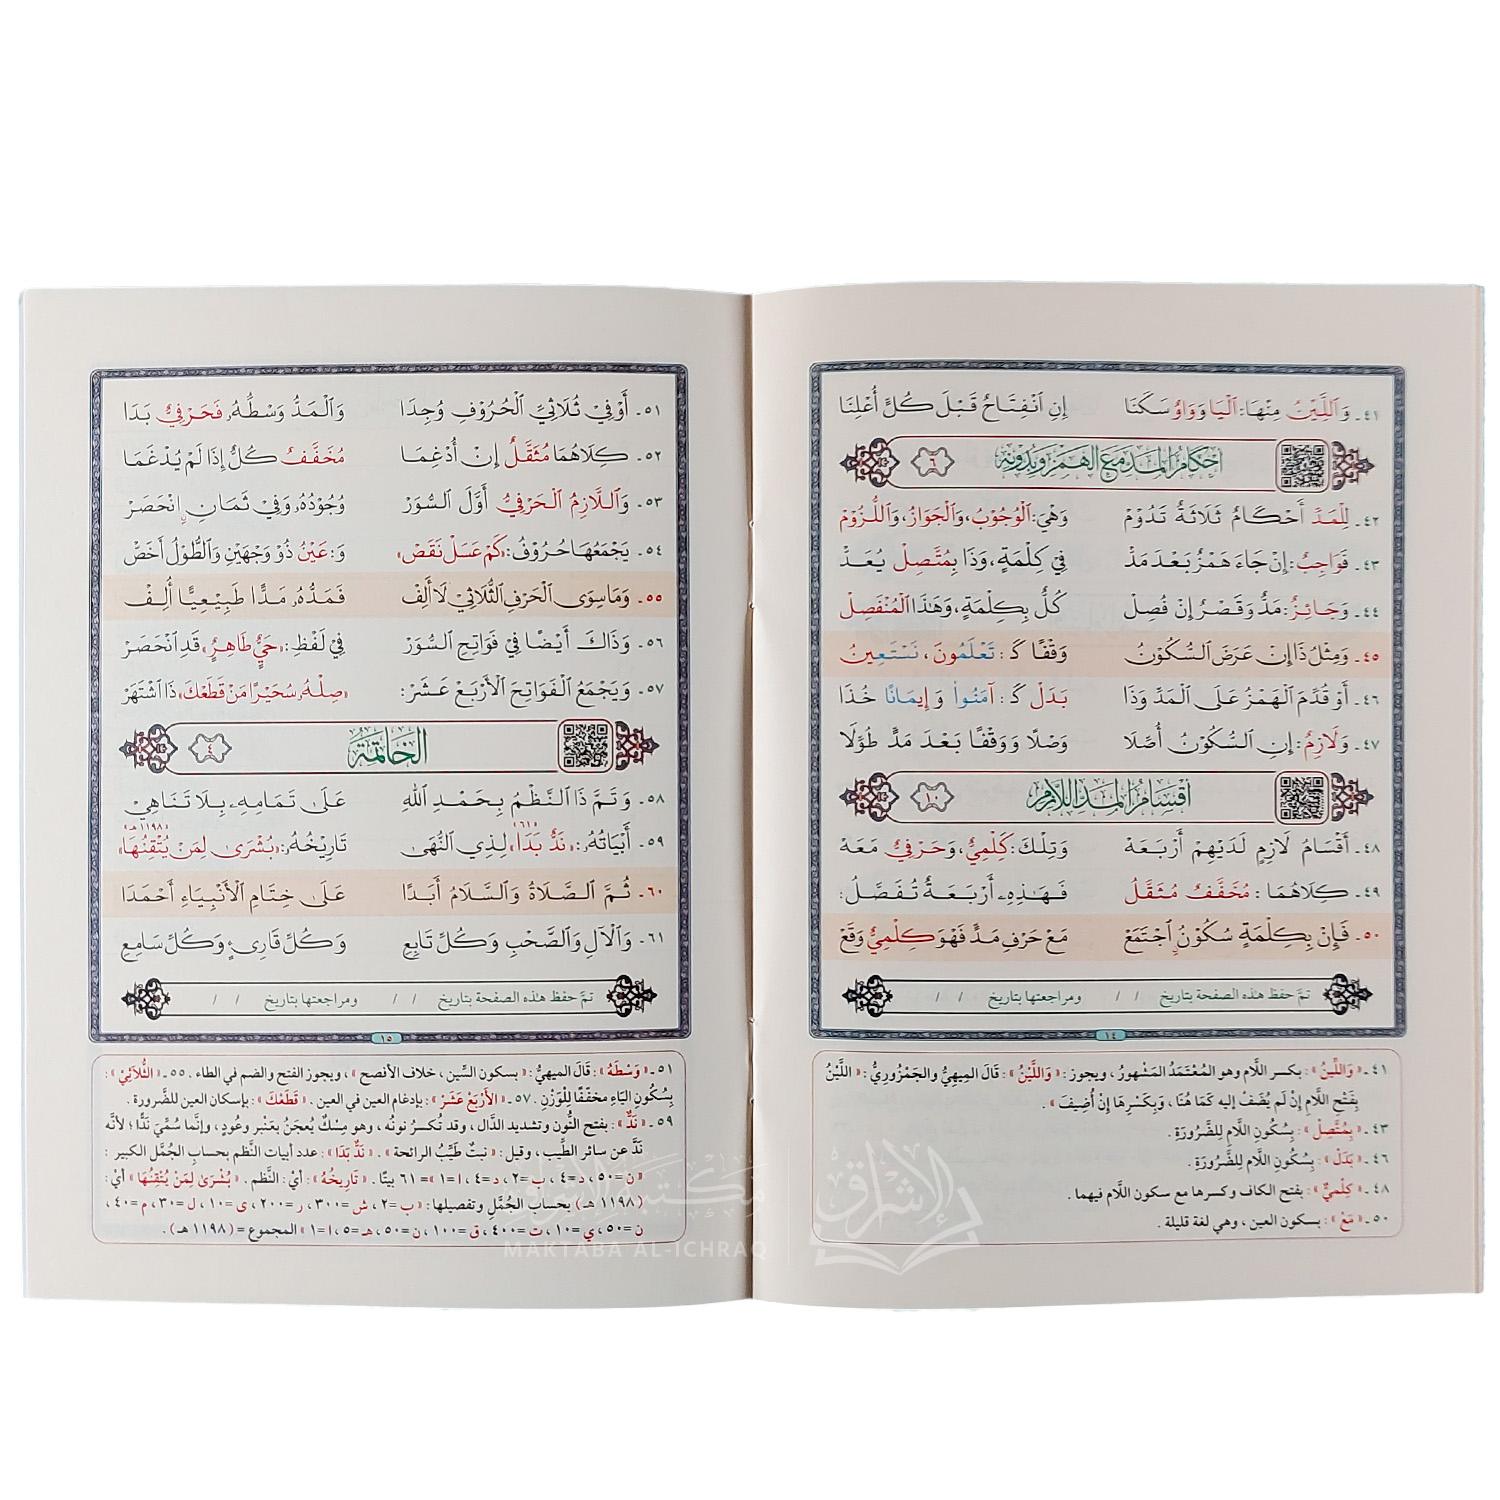 ٤١ - وَاللِّينُ مِنْهَا: الْيَا وَوَاوٌ سَكَنَا إِنِ انْفِتَاحٌ قَبْلَ كُلٍّ أُعْلِنَا
أَحْكَامُ الْمَدِّ مَعَ الْهَمْزِ وَبِدُونِهِ ٦
٤٢ - لِلْمَدِّ أَحْكَامٌ ثَلَاثَةٌ تَدُومْ وَهْيَ: الْوُجُوبُ، وَالْجَوَازُ، وَاللُّزُومْ
٤٣ - فَوَاجِبٌ: إِنْ جَاءَ هَمْزٌ بَعْدَ مَدّْ فِي كِلْمَةٍ، وَذَا بِمُتَّصِلْ يُعَدّْ
٤٤ - وَجَائِزٌ: مَدٌّ وَقَصْرٌ إِنْ فُصِلْ كُلٌّ بِكِلْمَةٍ، وَهَذَا الْمُنْفَصِلْ
٤٥ - وَمِثْلُ ذَا إِنْ عَرَضَ السُّكُونُ وَقْفًا كَـ: تَعْلَمُونَ، نَسْتَعِينُ
٤٦ - أَوْ قُدِّمَ الْهَمْزُ عَلَى الْمَدِّ وَذَا بَدَلْ كَـ: آمَنُوا وَإِيمَانًا خُذَا
٤٧ - وَلَازِمٌ: إِنِ السُّكُونُ أُصِّلَا وَصْلًا وَوَقْفًا بَعْدَ مَدٍّ طُوِّلَا
أَقْسَامُ الْمَدِّ اللَّازِمِ ١٠
٤٨ - أَقْسَامُ لَازِمٍ لَدَيْهِمْ أَرْبَعَهْ وَتِلْكَ: كِلْمِيٌّ، وَحَرْفِيٌّ مَعَهْ
٤٩ - كِلَاهُمَا: مُخَفَّفٌ مُثَقَّلُ فَهَذِهِ أَرْبَعَةٌ تُفَصَّلُ:
٥٠ - فَإِنْ بِكِلْمَةٍ سُكُونٌ اجْتَمَعْ مَعْ حَرْفِ مَدٍّ فَهْوَ كِلْمِيٌّ وَقَعْ
تمَّ حفظ هذه الصفحة بتاريخ / / ومراجعتها بتاريخ / /
١٤
٤١ - « وَاللِّينُ » : بكسر اللَّام وهو المُعْتَمَدُ المَشْهورُ ، ويجوز : « وَاللَّيْنُ » : قَالَ المِيهِيُّ والجَمْزُورِيُّ : « اللَّيْنُ
بِفَتْحِ اللَّامِ إِنْ لَم يُضَفْ إليه كَمَا هُنَا ، وَبِكَسْرِهَا إِنْ أُضِيفَ » .
٤٣ - « بِمُتَّصِلْ » : بِسُكُونِ اللَّامِ لِلضَّرُورَةِ .
٤٦ - « بَدَلْ » : بِسُكُونِ اللَّامِ لِلضَّرُورَةِ .
٤٨ - « كِلْمِيٌّ » : بفتح الكاف وكسرها مع سكون اللَّام فيهما .
٥٠ - « مَعْ » : بسكون العين ، وهي لغة قليلة .
٥١ - أَوْ فِي ثُلَاثِيِّ الْحُرُوفِ وُجِدَا وَالْمَدُّ وَسْطُهُ فَحَرْفِيٌّ بَدَا
٥٢ - كِلَاهُمَا مُثَقَّلٌ إِنْ أُدْغِمَا مُخَفَّفٌ كُلٌّ إِذَا لَمْ يُدْغَمَا
٥٣ - وَاللَّازِمُ الْحَرْفِيُّ أَوَّلَ السُّوَرْ وُجُودُهُ، وَفِي ثَمَانٍ انْحَصَرْ
٥٤ - يَجْمَعُهَا حُرُوفُ: «كَمْ عَسَلْ نَقَصْ» وَ: عَيْنُ ذُو وَجْهَيْنِ وَالطُّولُ أَخَصّْ
٥٥ - وَمَا سِوَى الْحَرْفِ الثُّلَاثِيْ لَا أَلِفْ فَمَدُّهُ مَدًّا طَبِيعِيًّا أُلِفْ
٥٦ - وَذَاكَ أَيْضًا فِي فَوَاتِحِ السُّوَرْ فِي لَفْظِ: «حَيٌّ طَاهِرٌ» قَدِ انْحَصَرْ
٥٧ - وَيَجْمَعُ الْفَوَاتِحَ الْأَرْبَعْ عَشَرْ: «صِلْهُ سُحَيْرًا مَنْ قَطَعْكَ» ذَا اشْتَهَرْ
الْخَاتِمَةُ ٤
٥٨ - وَتَمَّ ذَا النَّظْمُ بِحَمْدِ اللهِ عَلَى تَمَامِهِ بِلَا تَنَاهِي
٥٩ - أَبْيَاتُهُ: «نَدٌّ بَدَا» لِذِي النُّهَى تَارِيخُهُ: «بُشْرَى لِمَنْ يُتْقِنُهَا»
٦٠ - ثُمَّ الصَّلَاةُ وَالسَّلَامُ أَبَدًا عَلَى خِتَامِ الْأَنْبِيَاءِ أَحْمَدَا
٦١ - وَالْآلِ وَالصَّحْبِ وَكُلِّ تَابِعِ وَكُلِّ قَارِئٍ وَكُلِّ سَامِعِ
تمَّ حفظ هذه الصفحة بتاريخ / / ومراجعتها بتاريخ / /
١٥
٥١ - « وَسْطَهُ » : قَالَ الميهيُّ : « بسكون السِّين ، خلاف الأفصح » ، ويجوز الفتح والضم في الطاء . ٥٥ - « الثُّلَاثِيْ » :
بِسُكُونِ اليَاءِ مخفَّفًا لِلْوَزْنِ . ٥٧ - « الْأَرْبَعْ عَشَرْ » : بإدغام العين في العين . « قَطَعْكَ » : بإسكان العين للضَّرورة .
٥٩ - « نَدٌّ » : بفتح النُّون وتشديد الدَّال ، وقد تُكسرُ نونُه ، وهو مِسْكٌ يُعجَنُ بعَنْبر وعُودٍ ، وإنَّما سُمِّيَ نَدًّا ؛ لأنَّه
نَدَّ عن سائر الطِّيب ، وقيل : « نبتٌ طَيِّبُ الرائحة » . « نَدٌّ بَدَا » : عدد أبيات النَّظم بحساب الجُمَّل الكبير :
« ن=٥٠ ، د=٤ ، ب=٢ ، د=٤ ، ا=١ » = ٦١ بيتًا . « تَارِيخُهُ » : أيْ : النَّظم . « بُشْرَى لِمَنْ يُتْقِنُهَا » أيْ :
(١١٩٨ هـ) بحساب الجُمَّلِ وتفصيلها : « ب=٢ ، ش=٣٠٠ ، ر=٢٠٠ ، ى=١٠ ، ل=٣٠ ، م=٤٠ ،
ن=٥٠ ، ي=١٠ ، ت=٤٠٠ ، ق=١٠٠ ، ن=٥٠ ، هـ=٥ ، ا=١ » المجموع = (١١٩٨ هـ) .
مكتبة الإشراق
MAKTABA AL-ICHRAQ
الإشراق